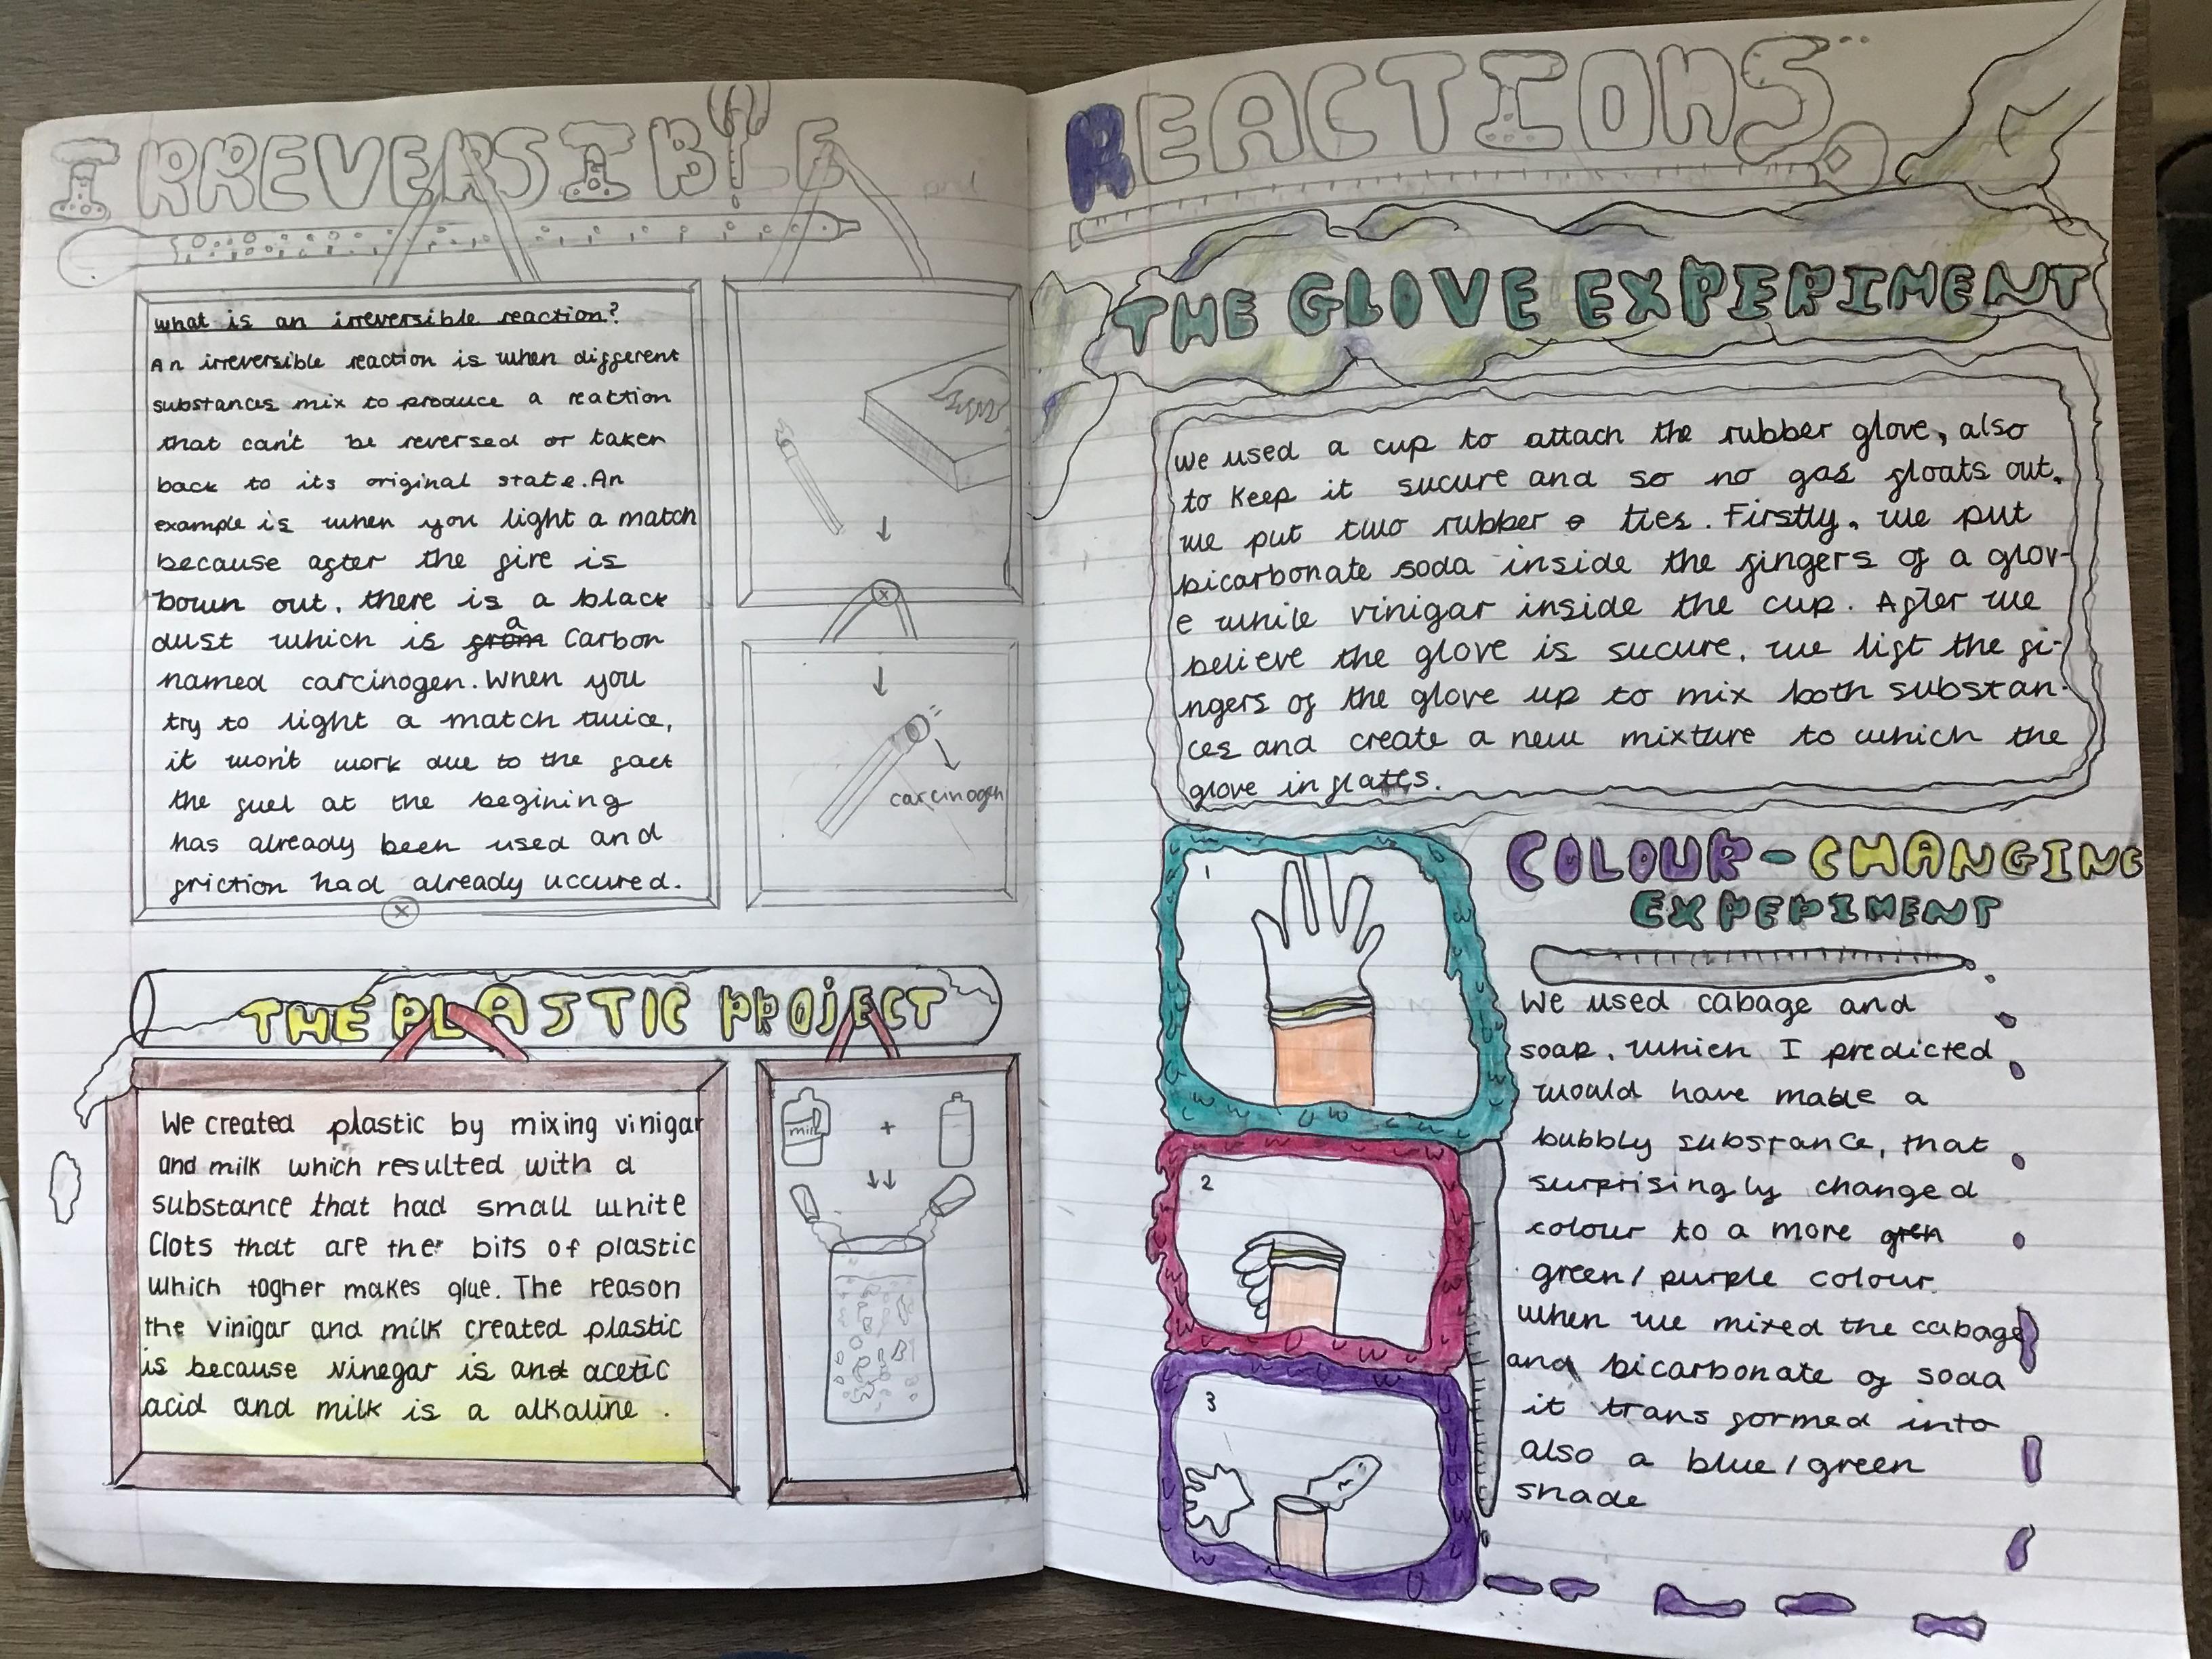 IRREVERSIBLE
What is an irreversible reaction?
An irreversible reaction is when different
substances mix to produce a reaction
that can't be reversed or taken
back to its original state. An
example is when you light a match
because after the fire is
bown out, there is a black
dust which is from a Carbon
named carcinogen. When you
try to light a match twice,
it won't work due to the fact
the fuel at the begining
has already been used and
friction had already uccured.
carcinogen
THE PLASTIC PROJECT
We created plastic by mixing vinigar
and milk which resulted with a
substance that had small white
Clots that are the bits of plastic
which togher makes glue. The reason
the vinigar and milk created plastic
is because vinegar is and acetic
acid and milk is a alkaline .
milk
+
REACTIONS
THE GLOVE EXPERIMENT
We used a cup to attach the rubber glove, also
to keep it sucure and so no gas floats out,
we put two rubber ties. Firstly, we put
bicarbonate soda inside the fingers of a glov-
e while vinigar inside the cup. After we
believe the glove is sucure, we lift the fi-
ngers of the glove up to mix both substan-
ces and create a new mixture to which the
glove inflates.
1
2
3
COLOUR-CHANGING
EXPERIMENT
We used cabage and
soap, which I predicted
would have made a
bubbly substance, that
surprisingly changed
colour to a more gren
green/purple colour.
When we mixed the cabage
and bicarbonate of soda
it transformed into
also a blue/green
shade